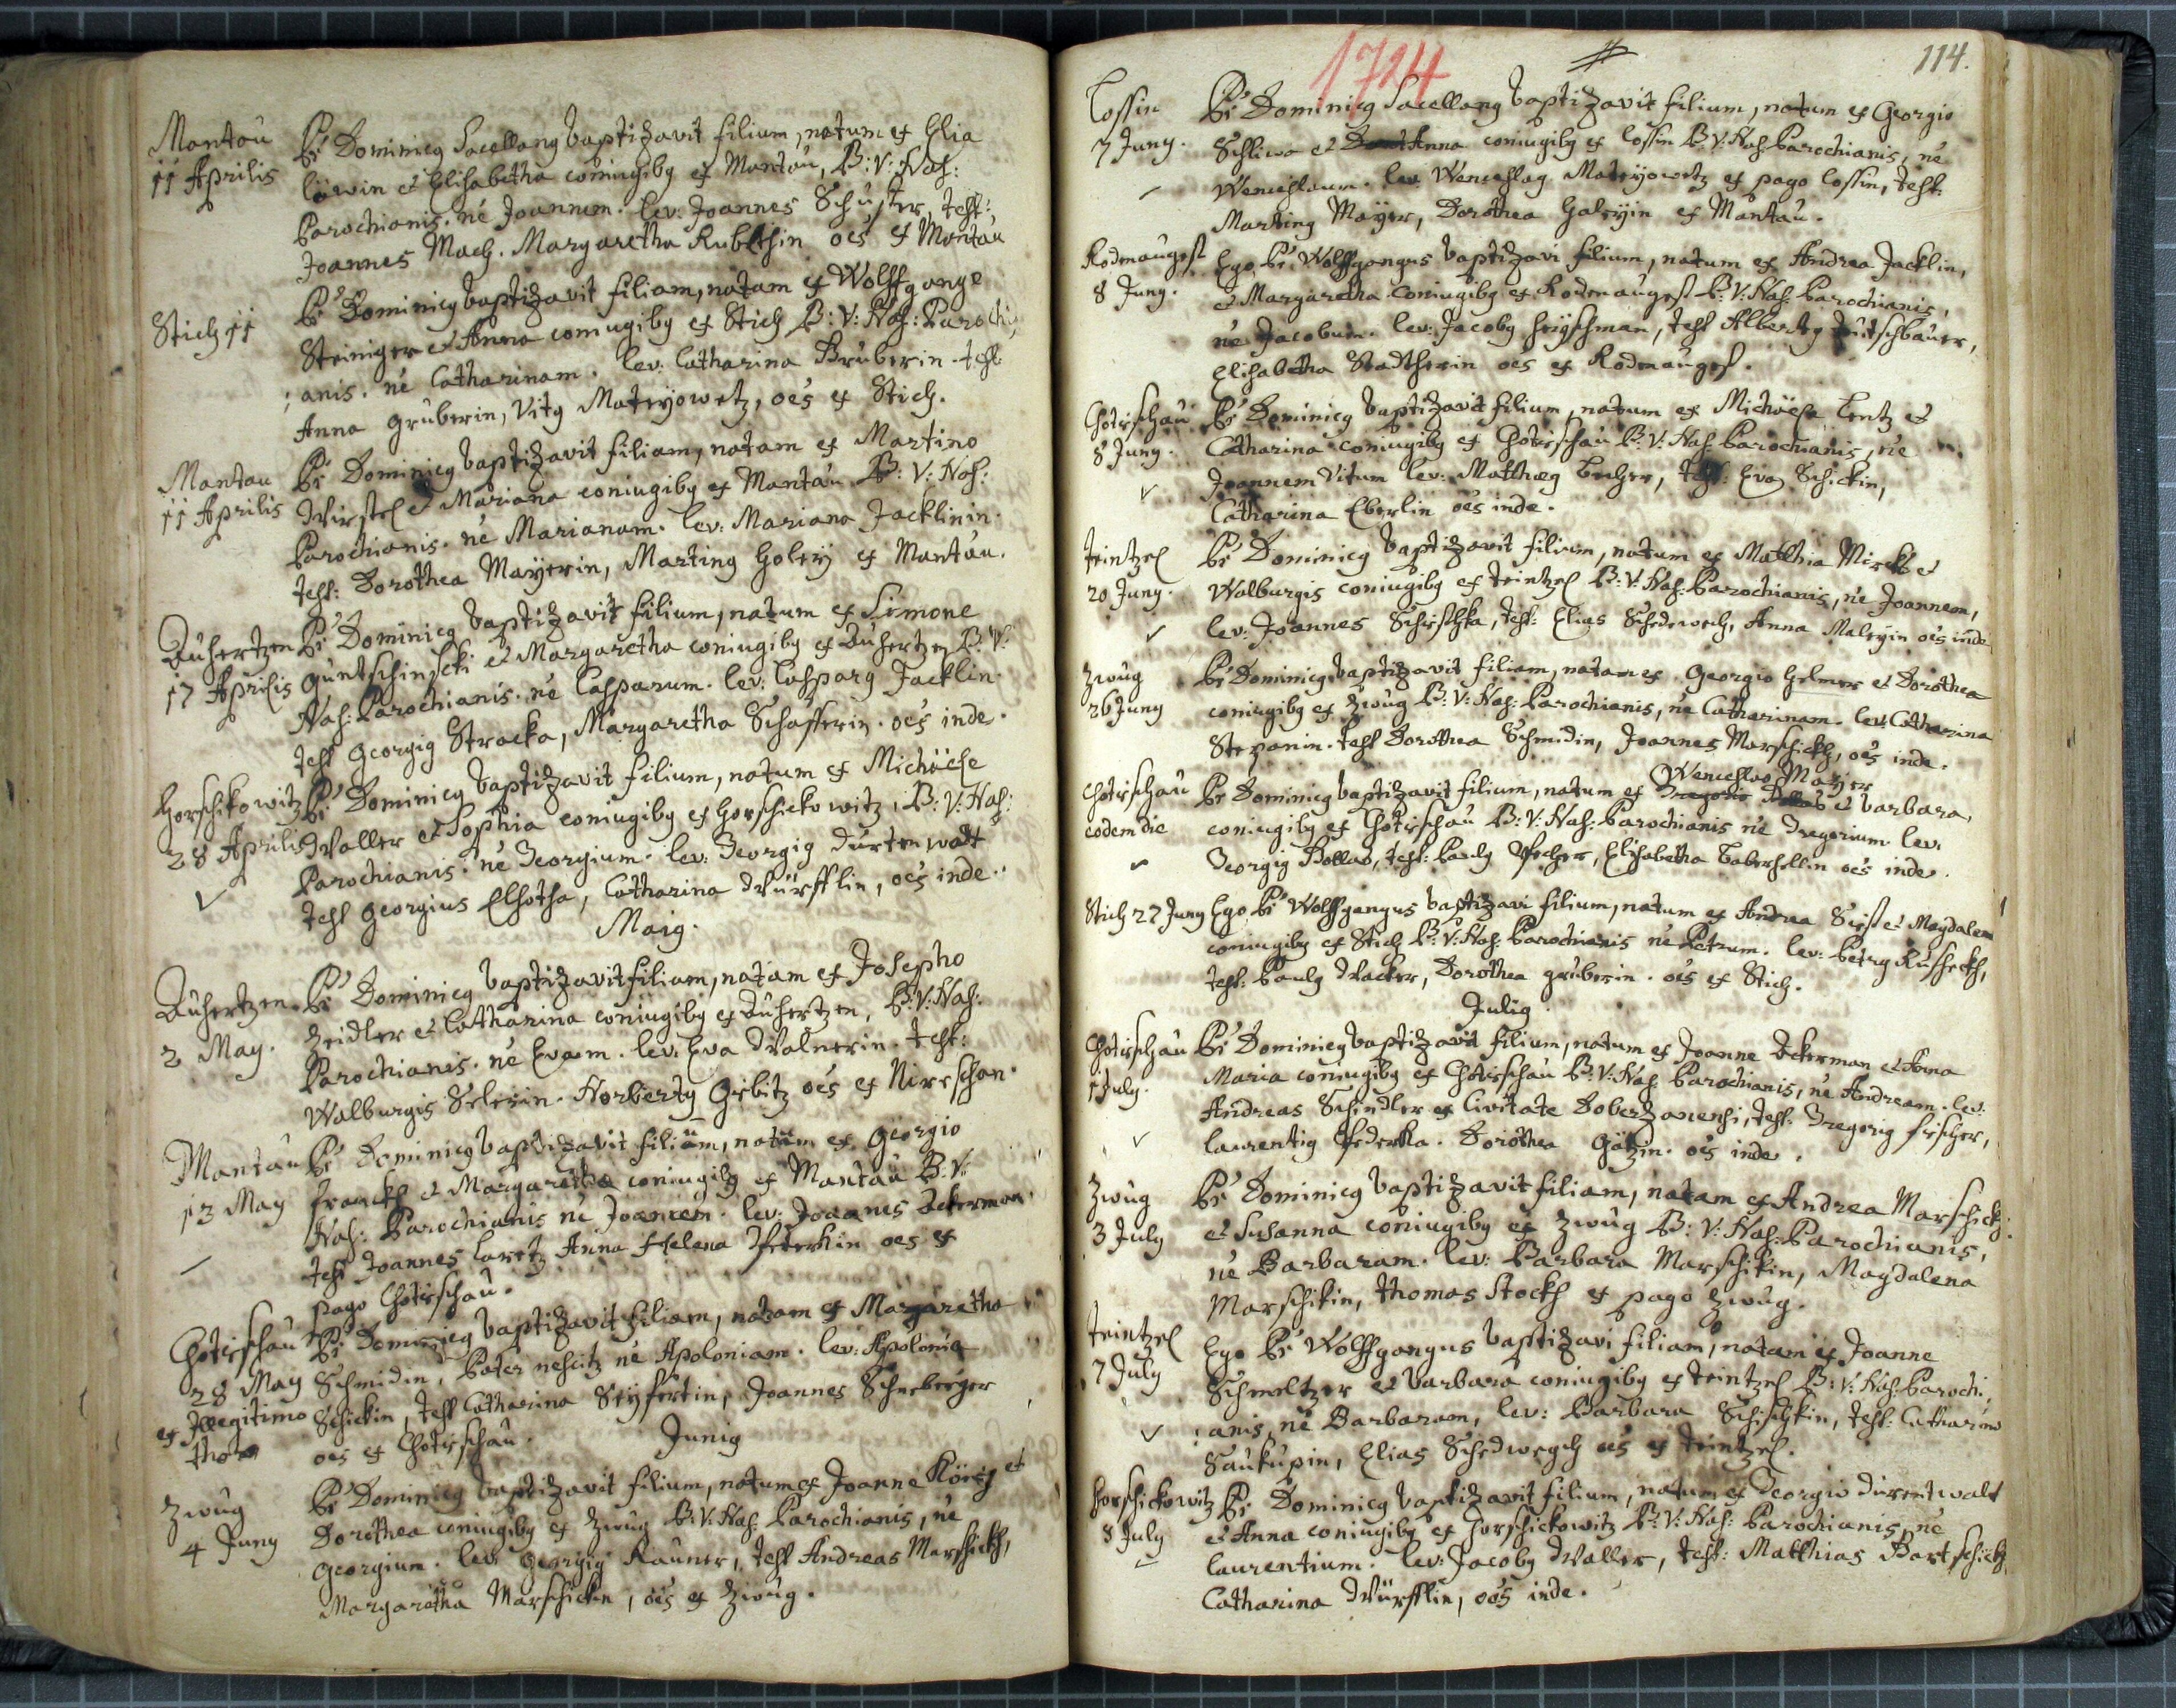 Mantau Pr Dominicg Sacellang baptizavit filium, natum ex Elia
11 Aprilis Löwin et Elisabetha coniugibg ex Mantau, B: V: Nas:
Parochianis. ne Joannem. lev: Joannes Schuster, test:
Joannes Mach. Margaretha oes ex Mantau
Pr Dominicg baptizavit filiam, natam ex Wolffgango
Stich 11 Steiniger et Anna coniugibg ex Stich B: V: Nas: Parochi
anis. ne Catharinam. lev: Catharina Gruberin. test:
Anna Gruberin, Vitg Mateyowetz, oes ex Stich.
Mantau Pr Dominicg baptizavit filiam, natam ex Martino
11 Aprilis et Mariana coniugibg ex Mantau B: V: Nas:
Parochianis. ne Marianam. lev: Mariana Jacklinin.
test: Dorothea Mayerin, Marting Goley ex Mantau.
Auhertzen Pr Dominicg baptizavit filium, natum ex Simone
17 Aprilis Guntschinscki et Margaretha coniugibg ex Auhertzen B. V.
Nas: Parochianis. ne Casparum. lev: Casparg Jacklin.
test Georgig Stracka, Margaretha Schafferin. oes inde.
Horschikowitz Pr Dominicg baptizavit filium, natum ex Michäele
28 Aprilis Waller et Sophia coniugibg ex Horschickowitz, B: V: Nas:
Parochianis. ne Georgium. lev: Georgig Dürrenwalt
test Georgius, Catharina Würfflin, oes inde.
Maig.
Auhertzen. Pr Dominicg baptizavit filiam, natam ex Josepho
2 May. Zeidler et Catharina coniugibg ex Auhertzen, B: V: Nas:
Parochianis. ne Evam. lev: Eva Walnerin. test:
Walburgis. Norbertg Gribitz oes ex Nirschan.
Mantau Pr Dominicg baptizavit filium, natum ex Georgio
13 May Franckh et Margaretha coniugibg ex Mantau B: V:
Nas: Parochianis ne Joannem. lev: Joannes Ackerman.
test Joannes Lantz Anna Helena oes ex
pago Chotieschau.
Chotieschau Pr Dominicg baptizavit filiam, natam ex Margaretha
28 May Schmidin, Pater nescitg ne Apoloniam. lev: Apolonia
ex Illegitimo Schickin, test Catharina Seyfertin, Joannes Schneberger
thoro oes ex Chotieschau. Junig
Zwug Pr Dominicg baptizavit filium, natum ex Joanne König et
4 Juny Dorothea coniugibg ex Zwug B: V: Nas: Parochianis, ne
Georgium. lev: Georgig Rauner, test Andreas Marschickh,
Margaretha Marschickin, oes ex Zwug.
1724 114.
Lossin Pr Dominicg Sacellang baptizavit filium, natum ex Georgio
7 Juny. Schliwa et Anna coniugibg ex Lossin B: V: Nas: Parochianis, ne
Wenceslaum. lev: Wenceslag Mateyowetz ex pago Lossin, test:
Marting Mayer, Dorothea Goleyin ex Mantau.
Rodenaugest Ego Pr Wolffgangus baptizavi filium, natum ex Andrea Jacklin,
8 Juny. et Margaretha coniugibg ex Rodenaugest B: V: Nas: Parochianis,
ne Jacobum. lev: Jacobg, test Albertg,
Elisabetha oes ex Rodenaugest.
Chotieschau Pr Dominicg baptizavit filium, natum ex Michäele Lentz et
8 Juny. Catharina coniugibg ex Chotieschau B: V: Nas: Parochianis, ne
Joannem Vitum lev: Matthæg, test: Eva Schickin,
Catharina Eberlin oes inde.
Teintzel Pr Dominicg baptizavit filium, natum ex Matthia et
20 Juny. Walburgis coniugibg ex Teintzel B: V: Nas: Parochianis, ne Joannem,
lev: Joannes Schischka, test: Elias, Anna Maleyin oes inde
Zwug Pr Dominicg baptizavit filiam, natam ex Georgio et Dorothea
26 Juny coniugibg ex Zwug B: V: Nas: Parochianis, ne Catharinam. lev: Catharina
Stepanin. test Dorothea Schmidin, Joannes Marschickh, oes inde.
Wenceslao Mayer
Chotieschau Pr Dominicg baptizavit filium, natum ex et Barbara,
eodem die coniugibg ex Chotieschau B: V: Nas: Parochianis ne Gregorium. lev:
Georgig, test: Paulg, Elisabetha oes inde.
Stich 27 Juny Ego Pr Wolffgangus baptizavi filium, natum ex Andrea et Magdalena
coniugibg ex Stich B: V: Nas: Parochianis ne Petrum. lev: Petrg,
test: Paulg Wacker, Dorothea Gruberin. oes ex Stich.
Julig
Chotieschau Pr Dominicg baptizavit filium, natum ex Joanne Ackerman et Anna
1 July. Maria coniugibg ex Chotieschau B: V: Nas: Parochianis, ne Andream. lev:
Andreas Schindler ex Civitate Doberzanensi, test: Gregorig Fischer,
Laurentig. Dorothea Götzin. oes inde.
Zwug Pr Dominicg baptizavit filiam, natam ex Andrea Marschickh.
3 July et Susanna coniugibg ex Zwug B: V: Nas: Parochianis,
ne Barbaram. lev: Barbara Marschikin, Magdalena
Marschikin, Thomas Stockh ex pago Zwug.
Teintzel Ego Pr Wolffgangus baptizavi filiam, natam ex Joanne
7 July Schmeltzer et Barbara coniugibg ex Teintzel B: V: Nas: Parochi
anis, ne Barbaram, lev: Barbara Schischkin, test: Catharina
Saukupin, Elias oes ex Teintzel.
Horschickowitz Pr Dominicg baptizavit filium, natum ex Georgio Dürrentwalt
8 July et Anna coniugibg ex Horschickowitz B: V: Nas: Parochianis, ne
Laurentium. lev: Jacobg Waller, test: Matthias Bartschickh
Catharina Würfflin, oes inde.